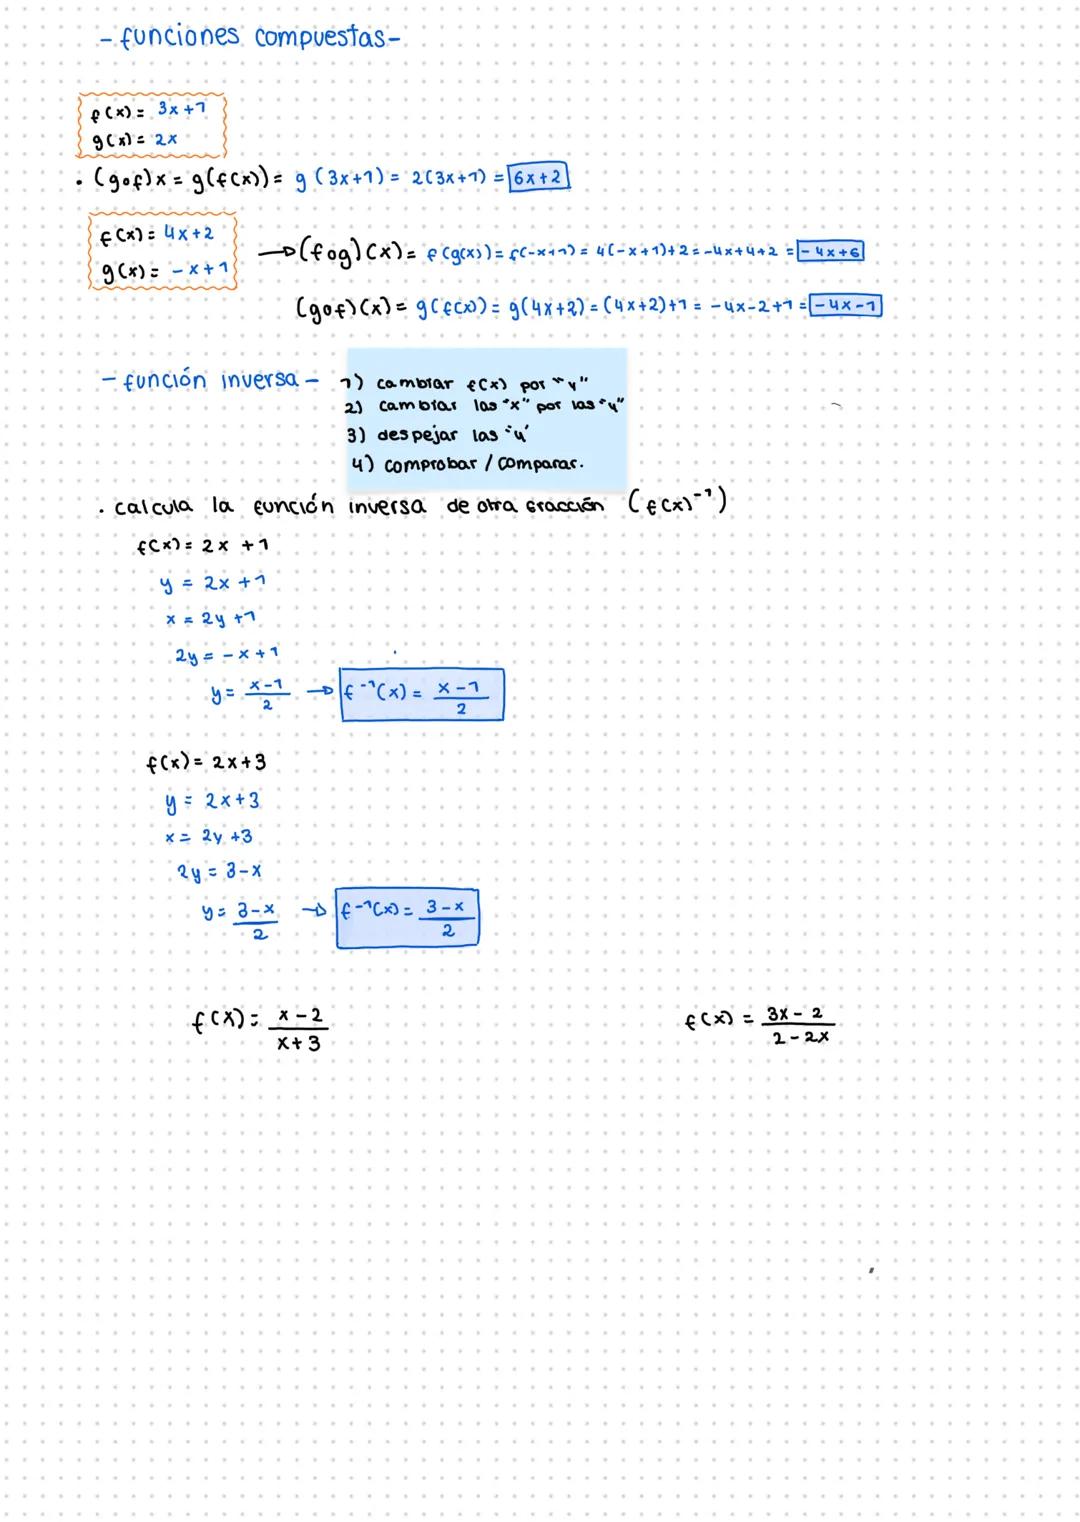 - funciones compuestas -
f(x) = 3x+1
g(x) = 2x
• (g∘f)x = g(f(x)) = g(3x+1) = 2(3x+1) = 6x+2
f(x) = 4x+2
g(x) = -x+1
→ (f∘g)(x) = f(g(x)) = f(-x+1) = 4(-x+1)+2 = -4x+4+2 = -4x+6
(g∘f)(x) = g(f(x)) = g(4x+2) = (4x+2)+1 = -4x-2+1 = -4x-1
- función inversa -
1) cambiar f(x) por "y"
2) cambiar las "x" por las "y"
3) despejar las "y"
4) comprobar / comparar.
• calcula la función inversa de otra fracción (f(x)⁻¹)
f(x) = 2x + 1
y = 2x+1
x = 2y+1
2y = -x+1
y = (x-1)/2 → f⁻¹(x) = (x-1)/2
f(x) = 2x+3
y = 2x+3
x = 2y+3
2y = 3-x
y = (3-x)/2 → f⁻¹(x) = (3-x)/2
f(x) = (x-2)/(x+3)
f(x) = (3x-2)/(2-2x)